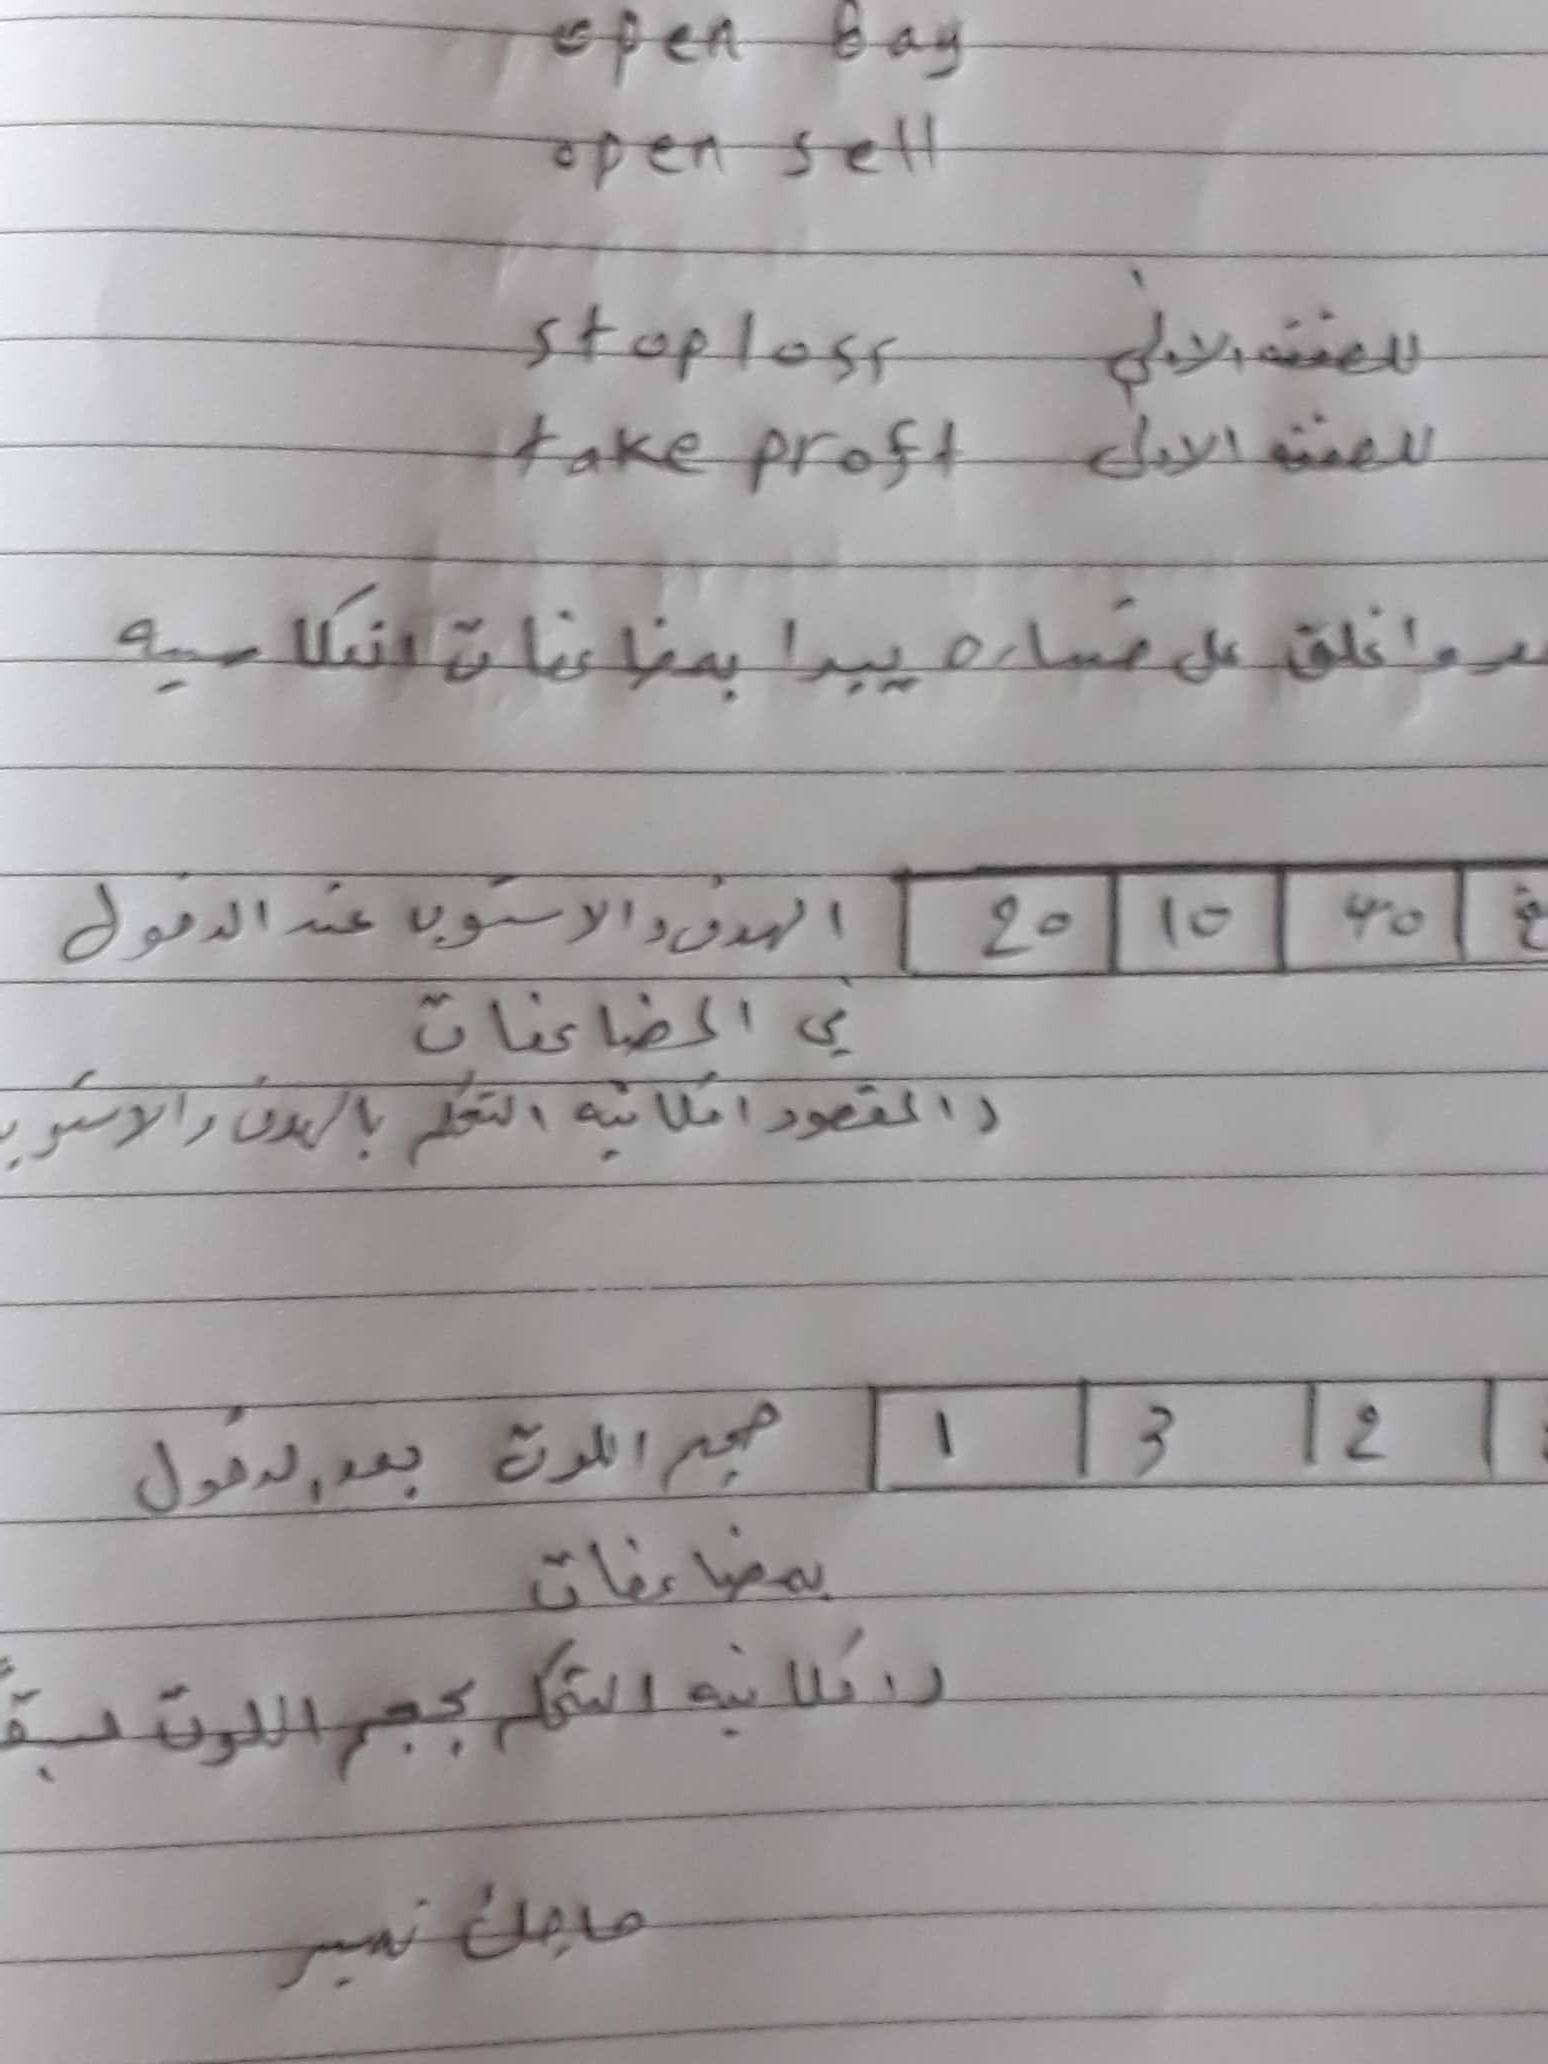 open bay
open sell
stoploss للصفقه الاولي
take proft للصفقه الاولى
واغلق على خساره يبدا بمضاعفات انعكاسيه
الهدف والاستوب عند الدخول 20 10 40
في المضاعفات
والمقصود امكانيه التحكم بالهدف والاستوب
حجم اللوت بعد الدخول 1 3 2
بمضاعفات
وامكانيه التحكم بحجم اللوت